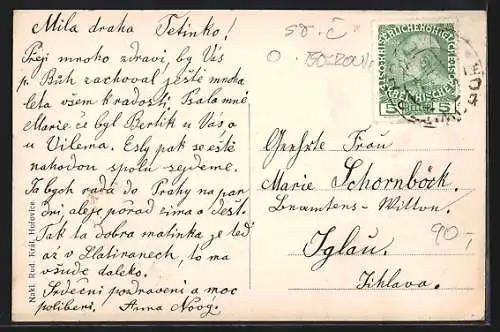 Mila draha Tetinko!
Přeji mnoho zdravi, by Vás
p. Bůh zachoval ještě mnoha
leta všem k radosti. Psala mně
Marie že byl Bertik u Vás a
u Vilema. Esly pak se ještě
nahodou spolu sejdeme.
Ja bych ráda do Prahy na par
dni, ale je pořad zima a dešť.
Tak ta dobra matinka je teď
až v Slatiňanech, to ma
všude daleko.
Srdečni pozdraveni a moc
polibeni. Anna
Nakl. Rud. Král, Hořovice.
KAISERLICHE KÖNIGLICHE
ÖSTERREICHISCHE POST
5 HELLER 5
Geehrte Frau
Marie Schornböck.
Beamtens-Wittwe.
Iglau.
Jihlava.
90,-